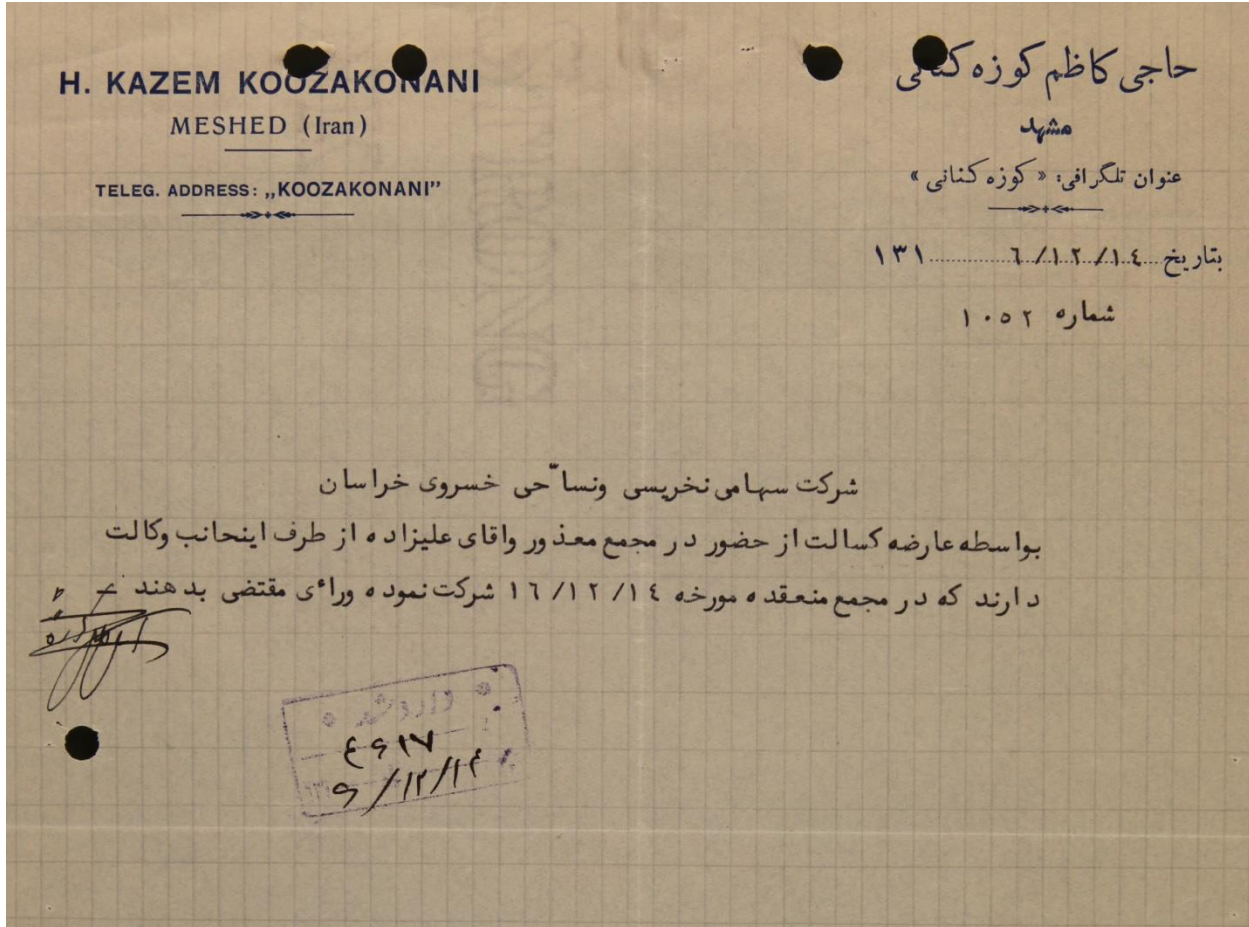 H. KAZEM KOOZAKONANI
MESHED (Iran)
TELEG. ADDRESS: „KOOZAKONANI"
حاجی کاظم کوزه کنانی
مشهد
عنوان تلگرافی: « کوزه کنانی »
بتاریخ ١٤/١٢/٦ ١٣١
شماره ١٠٥٢
شرکت سهامی نخریسی ونساّحی خسروی خراسان
بواسطه عارضه کسالت از حضور در مجمع معذور واقای علیزاده از طرف اینحانب وکالت
دارند که در مجمع منعقده مورخه ١٦/١٢/١٤ شرکت نموده ورأی مقتضی بدهند
وارد شد
٤٦١٧
٦/١٢/١٤